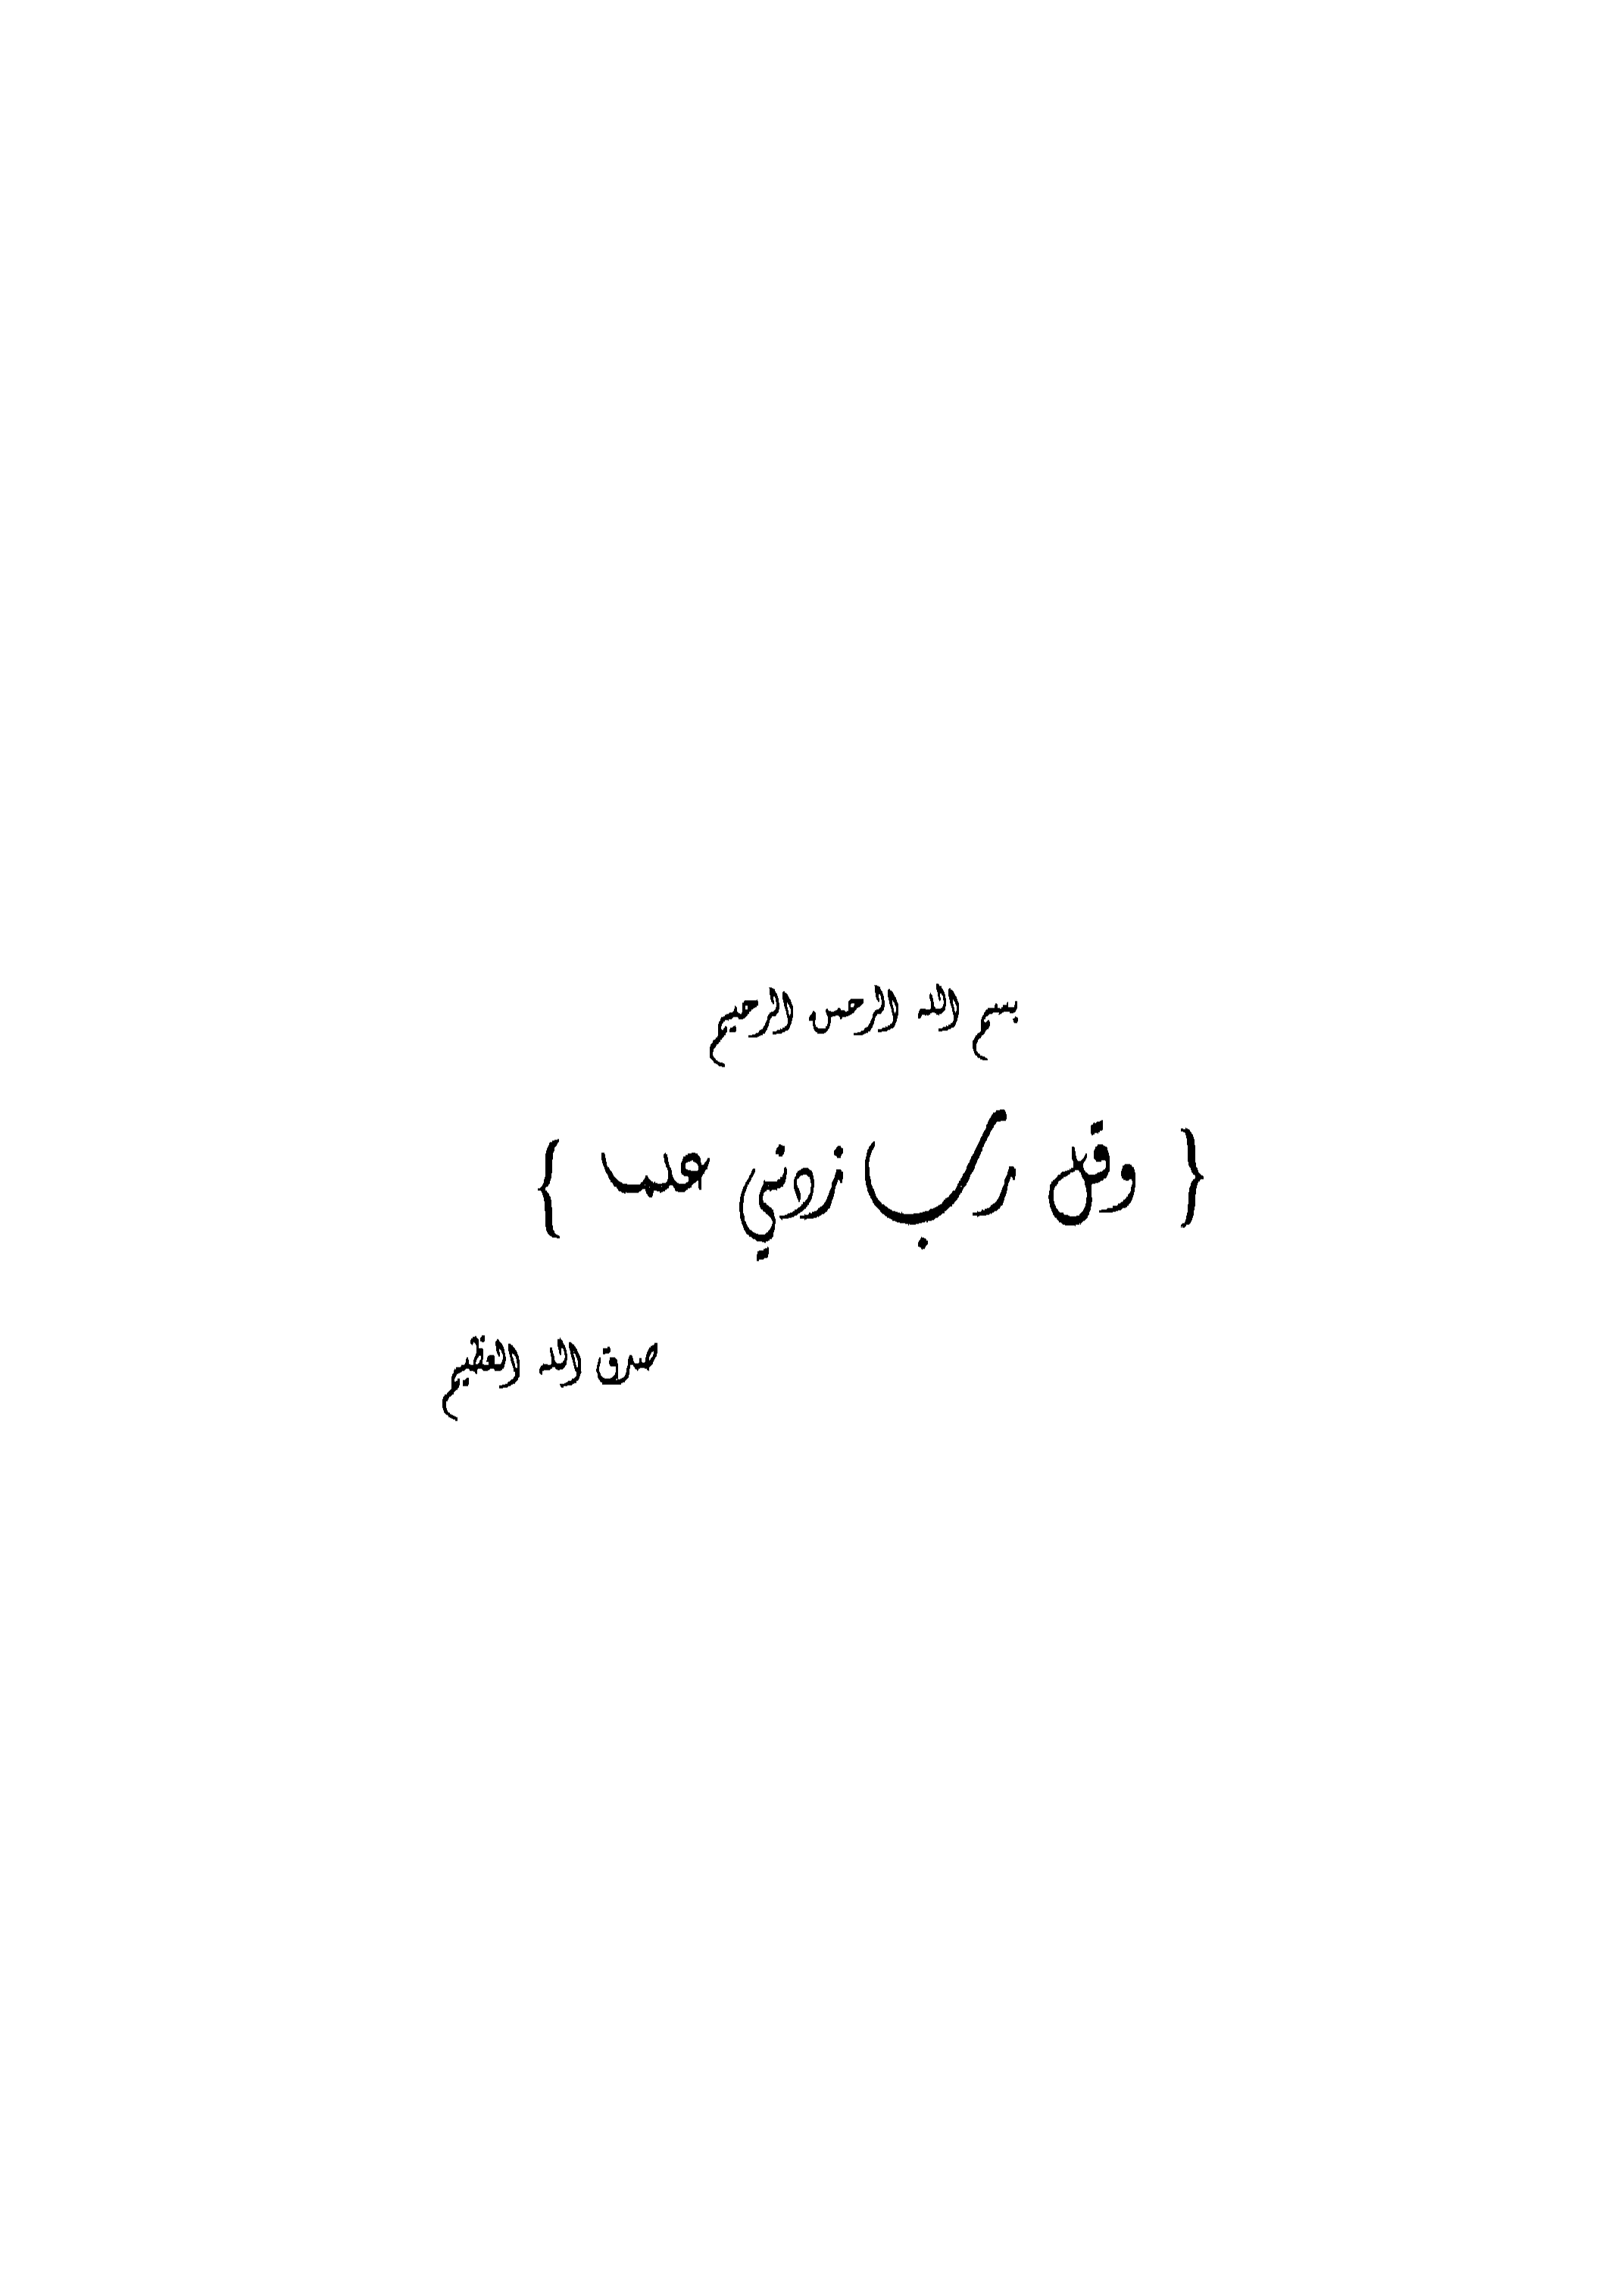 بسم الله الرحمن الرحيم
{ وقل رب زدني علما }
صدق الله العظيم